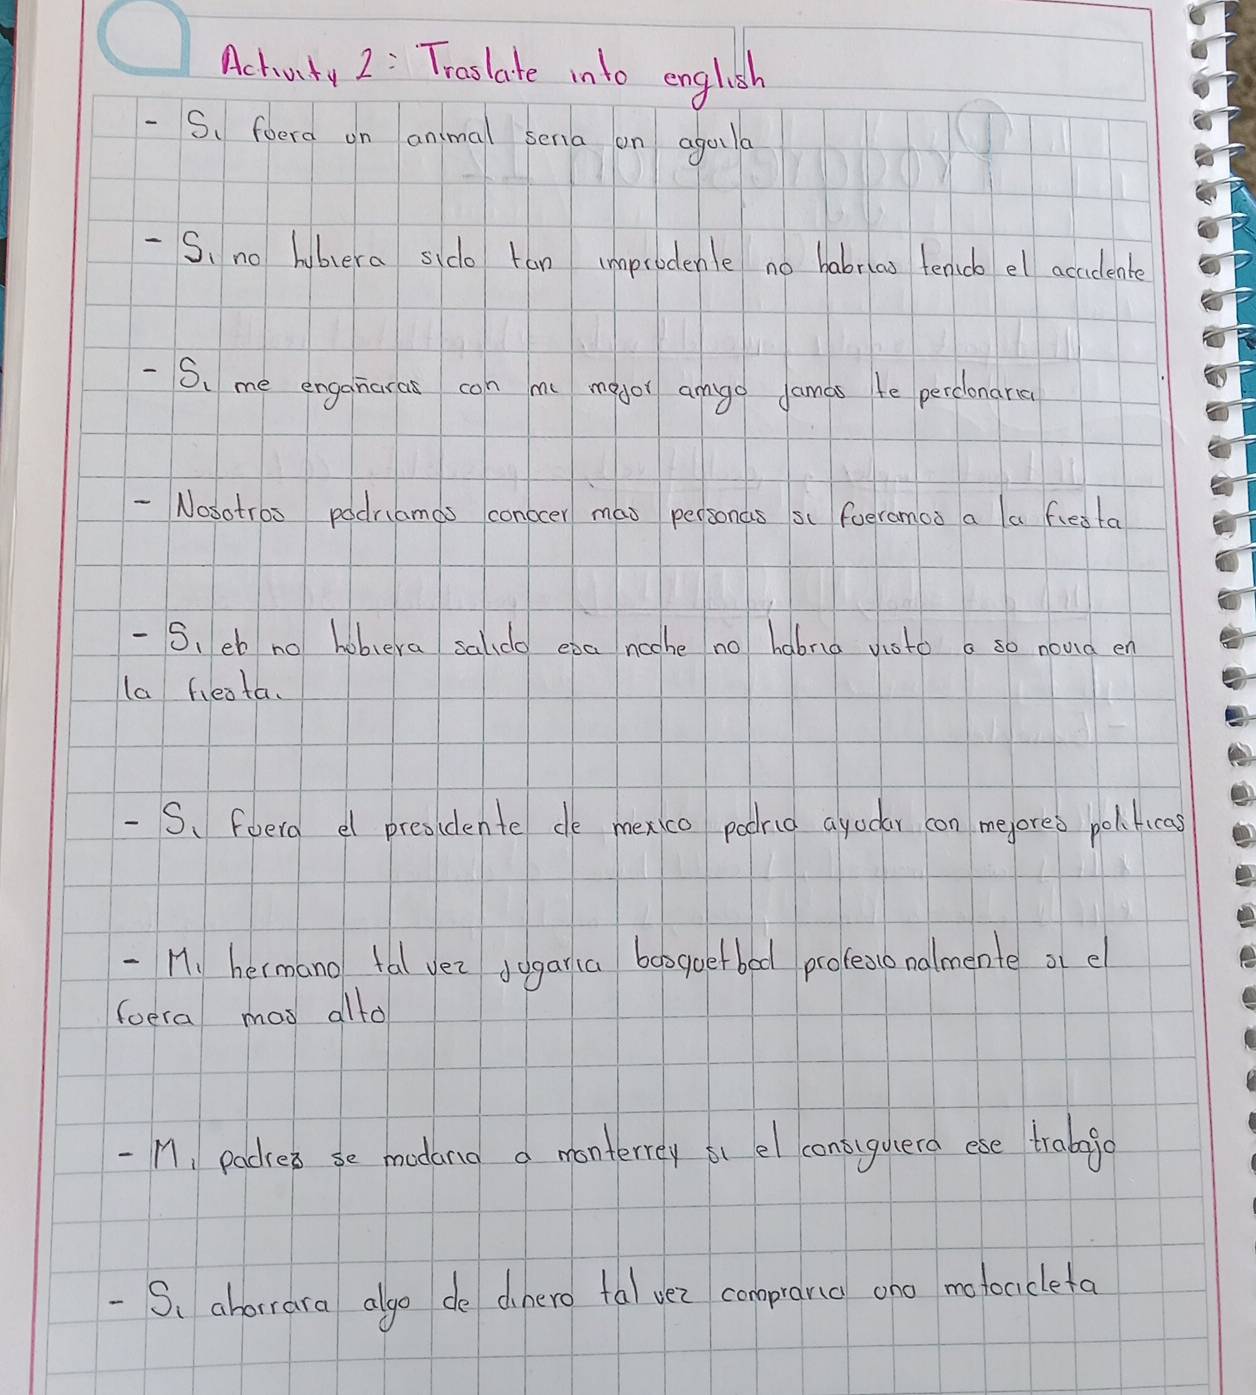 Activity 2: Traslate into english
- Si fuera un animal seria un aguila
- Si no hubiera sido tan imprudente no habrias tenido el accidente
- Si me engañaras con mi mejor amigo jamas te perdonaria
- Nosotros podriamos conocer mas personas si fueramos a la fiesta
- Si eb no hubiera salido esa noche no habria visto a su novia en
la fiesta.
- Si fuera el presidente de mexico podria ayudar con mejores politicas
- Mi hermano tal vez jugaria basquetbol profesionalmente si el
fuera mas alto
- Mi padres se mudaria a monterrey si el consiguiera ese trabajo
- Si ahorrara algo de dinero tal vez compraria una motocicleta